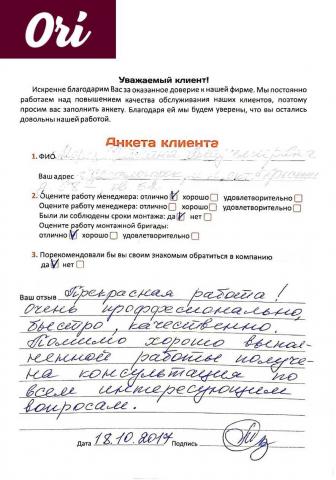 Ori
Уважаемый клиент!
Искренне благодарим Вас за оказанное доверие к нашей фирме. Мы постоянно
работаем над повышением качества обслуживания наших клиентов, поэтому
просим вас заполнить анкету. Благодаря ей мы будем уверены, что вы остались
довольны нашей работой.
Анкета клиента
1. ФИО
Ваш адрес
2. Оцените работу менеджера: отлично хорошо удовлетворительно
Оцените работу менеджера: отлично хорошо удовлетворительно
Были ли соблюдены сроки монтажа: да нет
Оцените работу монтажной бригады:
отлично хорошо удовлетворительно
3. Порекомендовали бы вы своим знакомым обратиться в компанию
да нет
Ваш отзыв Прекрасная работа!
Очень профессионально,
быстро, качественно.
Помимо хорошо выпол-
ненной работы получе-
на консультация по
всем интересующим
вопросам.
Дата 18.10.2017 Подпись